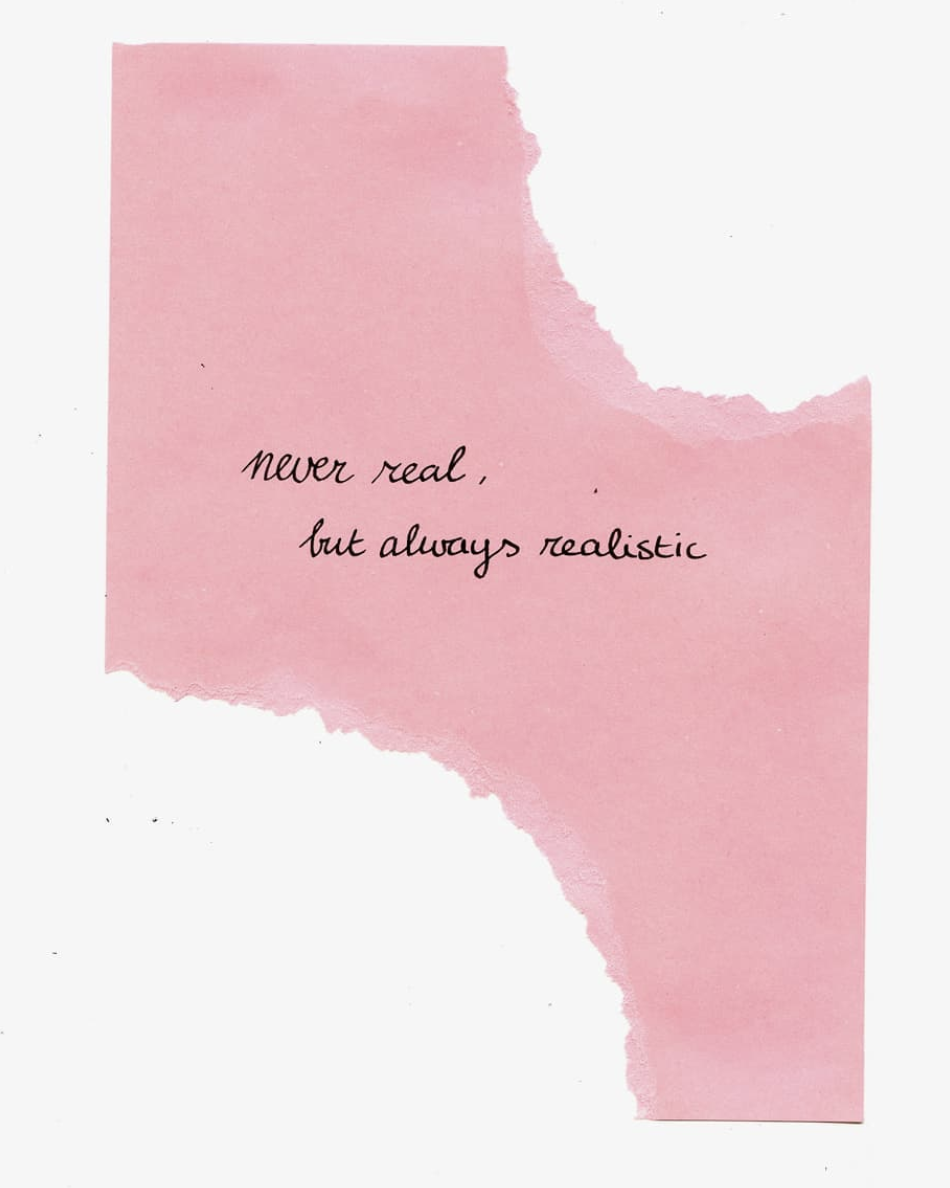 never real,
but always realistic